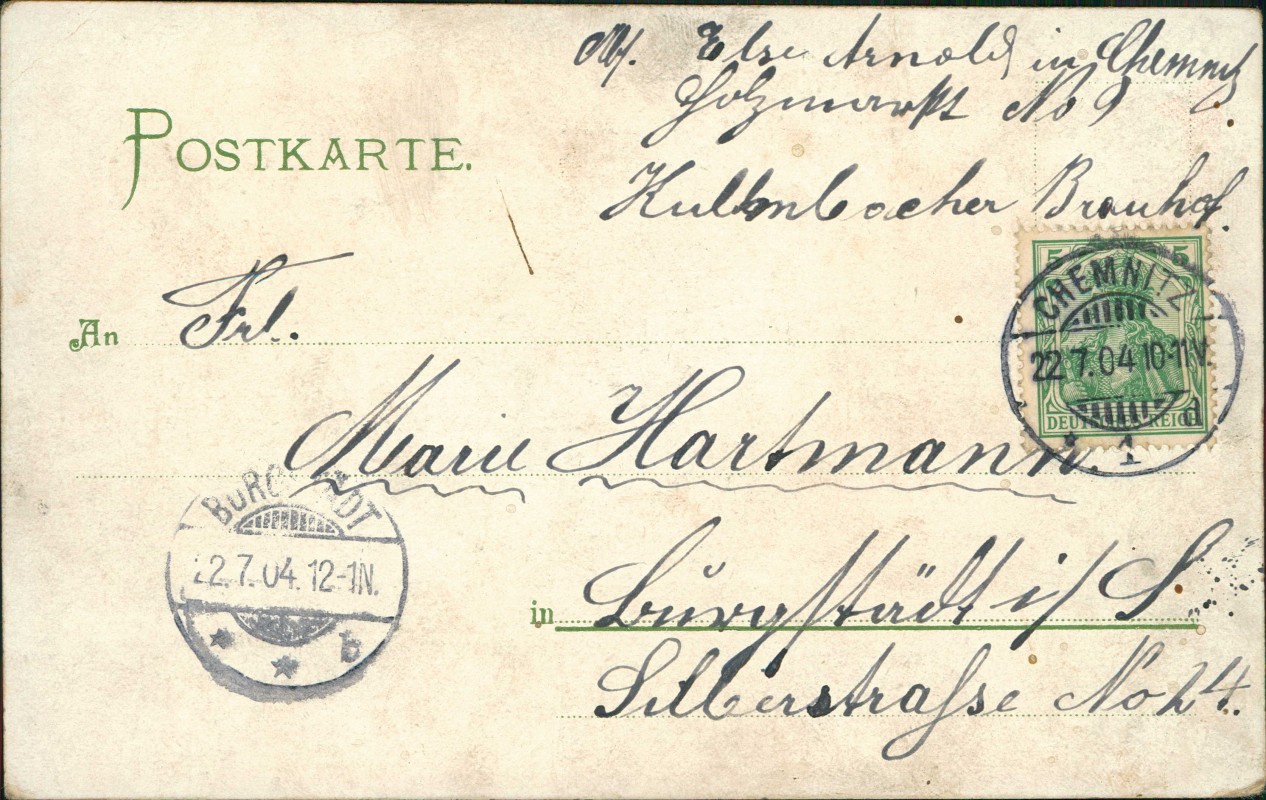 Abs. Else Arnold in Chemnitz
Holzmarkt No 9
Kulmbacher Brauhof.
POSTKARTE.
An Frl.
Marie Hartmann.
in Burgstädt i/S
Silberstraße No 24.
5 5
DEUTSCHES REICH
CHEMNITZ
22.7.04 10-11V.
* 1 d
BURGSTÄDT
22.7.04. 12-1N.
* * b